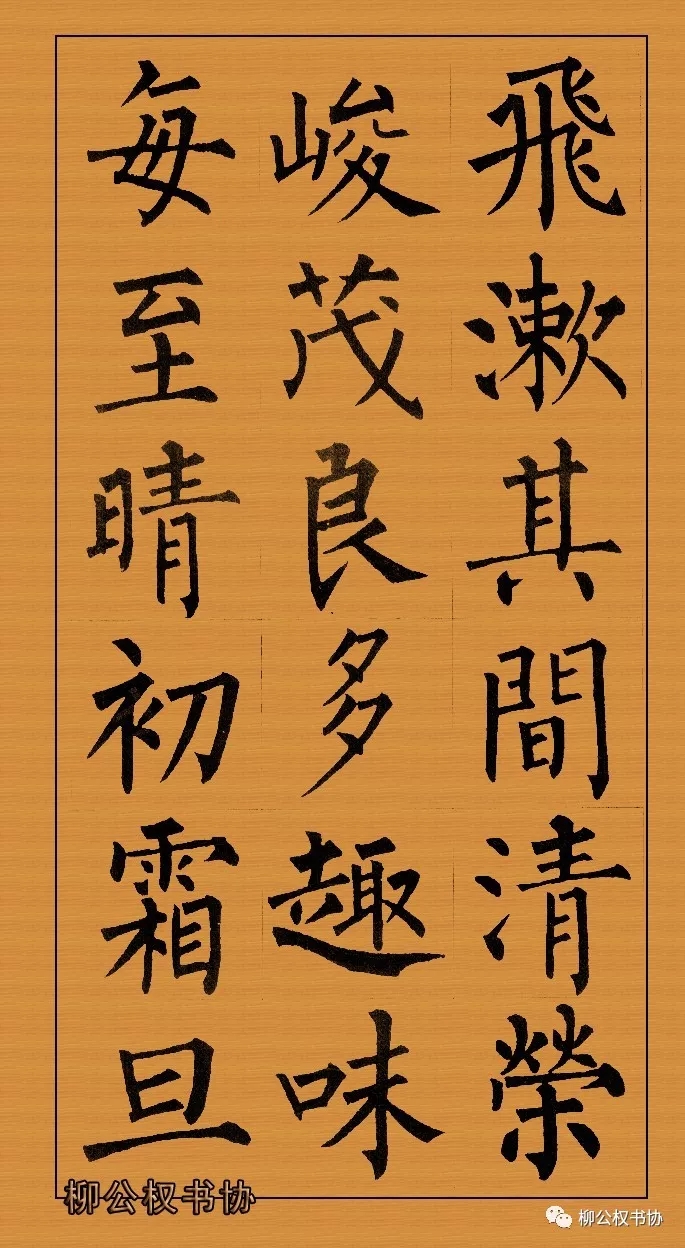 飛漱其間清榮
峻茂良多趣味
每至晴初霜旦
柳公权书协
柳公权书协